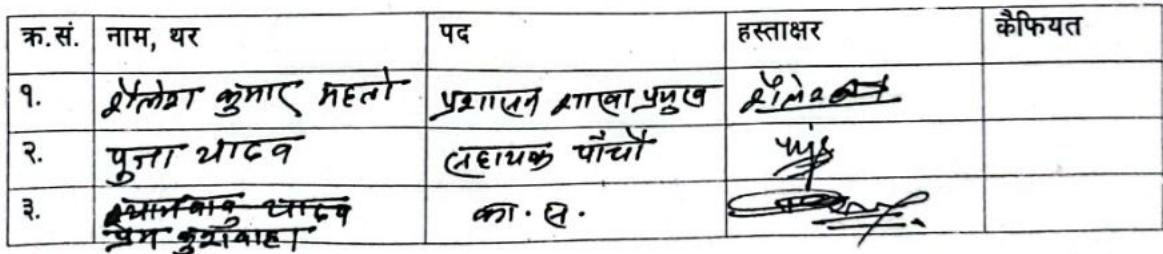 क्र.सं. नाम, थर पद हस्ताक्षर कैफियत
१. शैलेश कुमार महतो प्रशासन शाखा प्रमुख शैलेश
२. पुजा यादव सहायक पाँचौ
३. श्यामबाबु यादव का. स.
प्रेम कुशवाहा